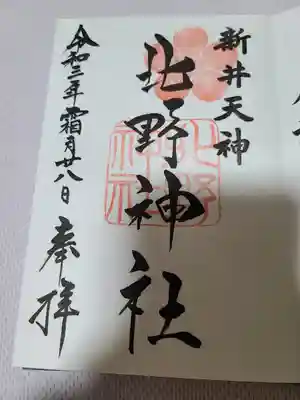 新井天神
北野神社
北野神社
令和三年霜月廿八日
奉拝